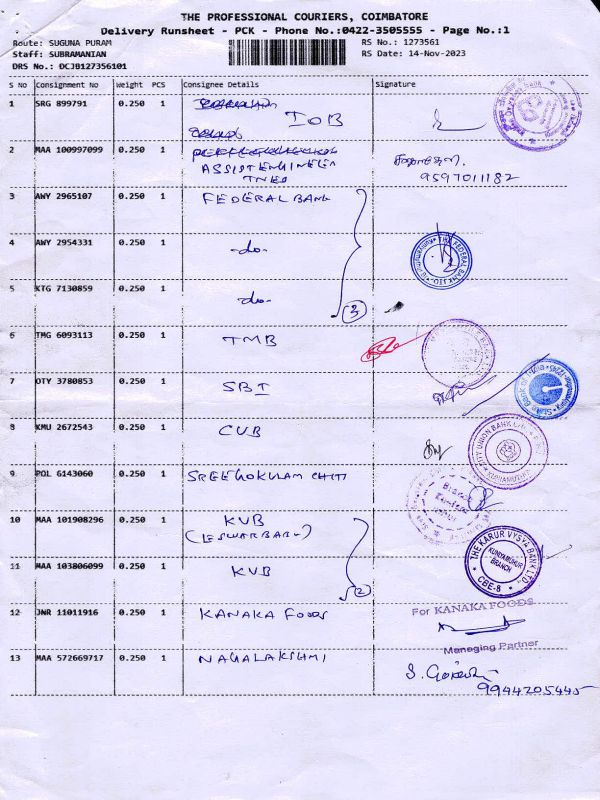 THE PROFESSIONAL COURIERS, COIMBATORE
Delivery Runsheet - PCK - Phone No.:0422-3505555 - Page No.:1
Route: SUGUNA PURAM
RS No.: 1273561
Staff: SUBRAMANIAN
RS Date: 14-Nov-2023
DRS No.: DCJB127356101
S No Consignment No Weight PCS Consignee Details Signature
1 SRG 899791 0.250 1 IOB
2 MAA 100997099 0.250 1
ASSISTENGINEER
TNEB
9597011182
3 AWY 2965107 0.250 1 FEDERAL BANK
4 AWY 2954331 0.250 1 -do-
THE FEDERAL BANK LTD
5 KTG 7130859 0.250 1 -do-
3
6 TMG 6093113 0.250 1 TMB
7 OTY 3780853 0.250 1 SBI
State Bank of India
8 KMU 2672543 0.250 1 CUB
CITY UNION BANK
KUNIAMUTHUR
9 POL 6143060 0.250 1 SREE GOKULAM CHITI
Branch
10 MAA 101908296 0.250 1 KVB
(ESWARBABU)
THE KARUR VYSYA BANK LTD.
KUNIYAMUTHUR
BRANCH
CBE-8
11 MAA 103806099 0.250 1 KVB
2
12 JNR 11011916 0.250 1 KANAKA FOODS
For KANAKA FOODS
Managing Partner
13 MAA 572669717 0.250 1 NAGALAKSHMI
9944205445